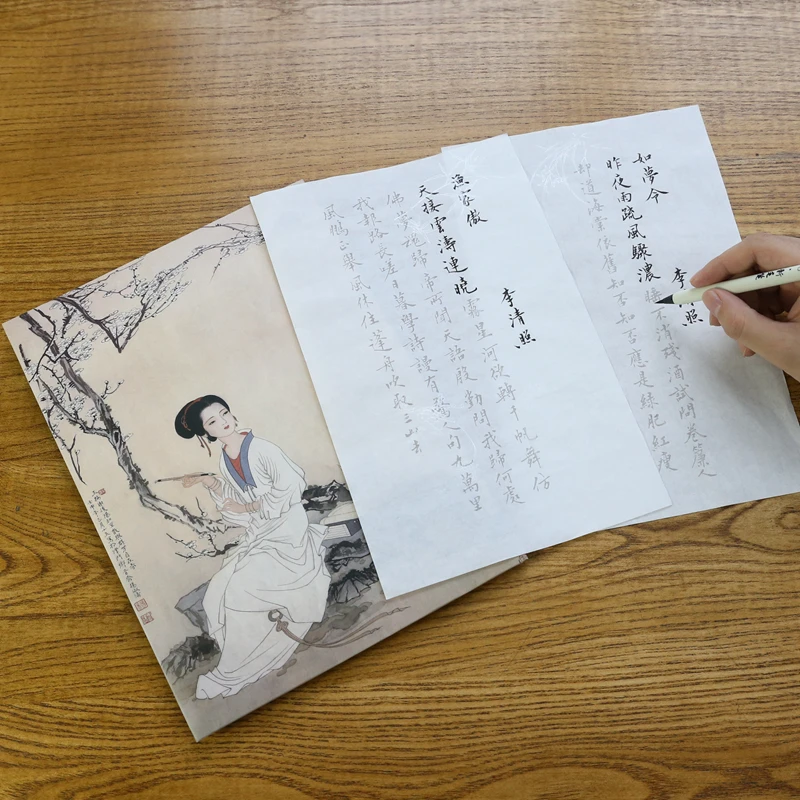 如夢令 李清照
昨夜雨疏風驟濃睡不消殘酒試問卷簾人
却道海棠依舊知否知否應是綠肥紅瘦
漁家傲 李清照
天接雲濤連曉霧星河欲轉千帆舞仿
佛夢魂歸帝所聞天語殷勤問我歸何處
我報路長嗟日暮學詩謾有驚人句九萬里
風鵬正舉風休住蓬舟吹取三山去